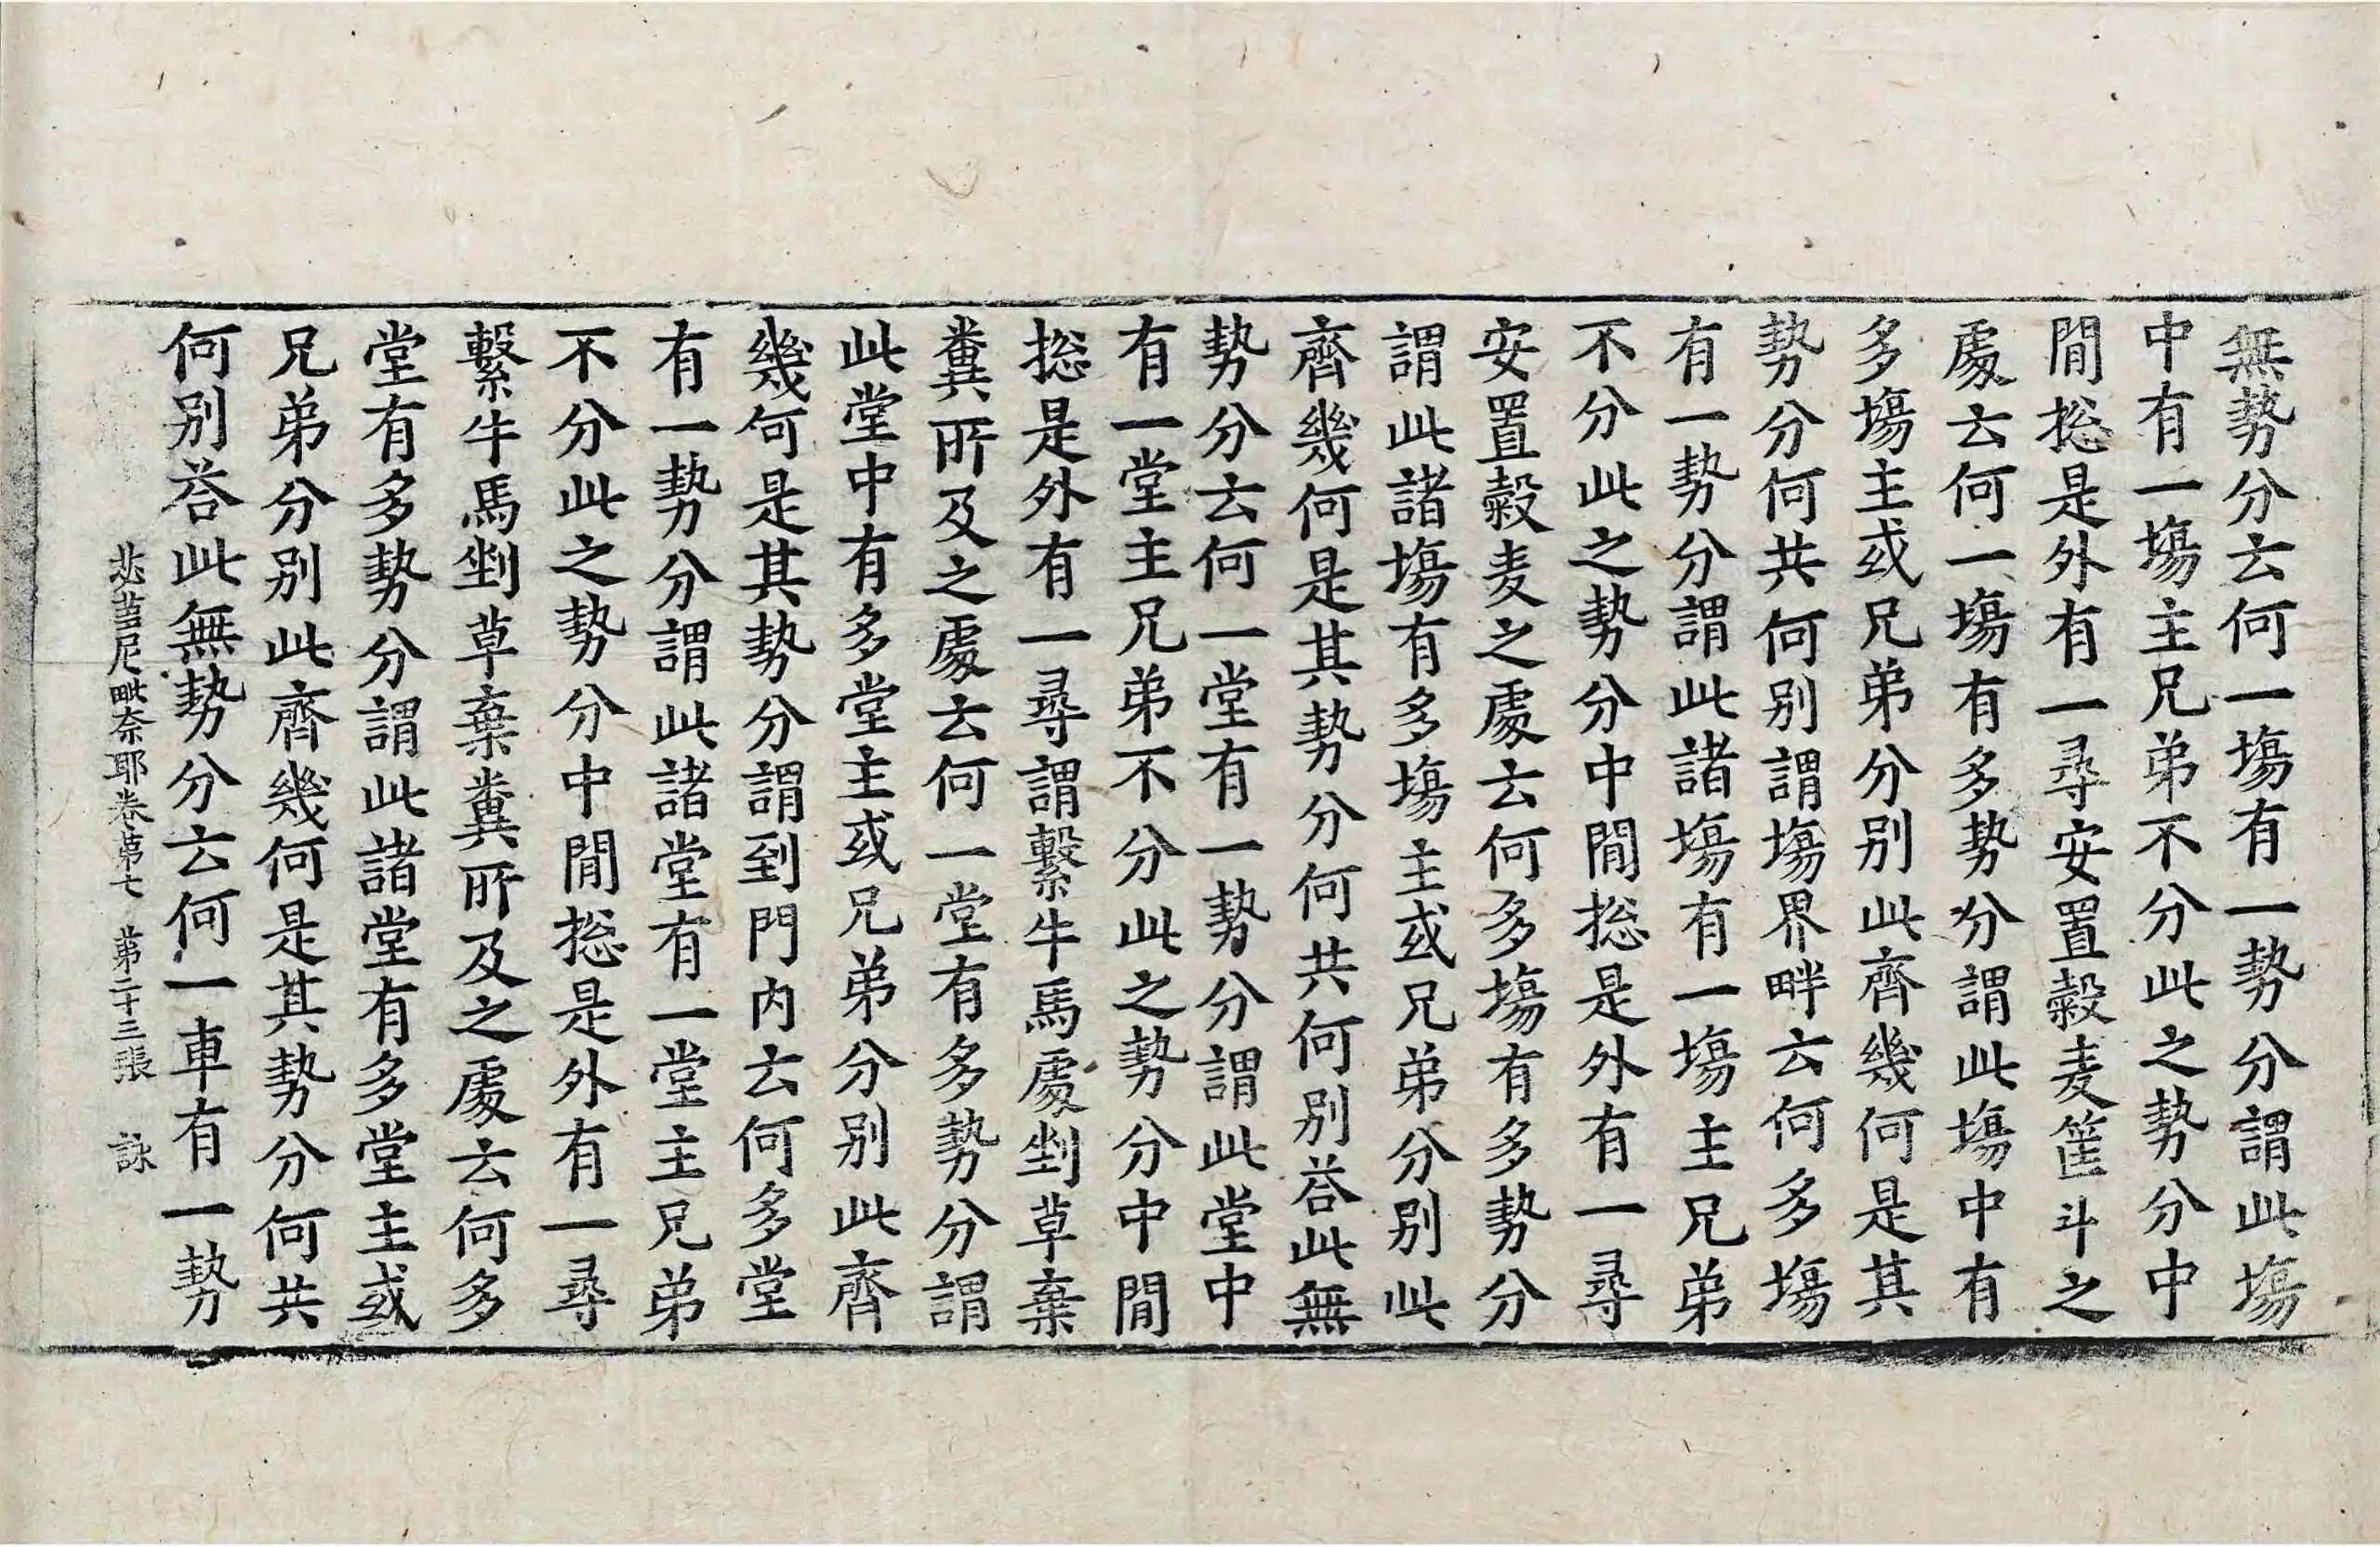 無勢分云何一塲有一勢分謂此塲
中有一塲主兄弟不分此之勢分中
閒捴是外有一尋安置糓麦篅斗之
處云何一塲有多勢分謂此塲中有
多塲主或兄弟分別此齊幾何是其
勢分何共何別謂塲界畔云何多塲
有一勢分謂此諸塲有一塲主兄弟
不分此之勢分中閒捴是外有一尋
安置糓麦之處云何多塲有多勢分
謂此諸塲有多塲主或兄弟分別此
齊幾何是其勢分何共何別荅此無
勢分云何一堂有一勢分謂此堂中
有一堂主兄弟不分此之勢分中閒
捴是外有一尋謂繫牛馬處剉草棄
糞所及之處云何一堂有多勢分謂
此堂中有多堂主或兄弟分別此齊
幾何是其勢分謂到門內云何多堂
有一勢分謂此諸堂有一堂主兄弟
不分此之勢分中閒捴是外有一尋
繫牛馬剉草棄糞所及之處云何多
堂有多勢分謂此諸堂有多堂主或
兄弟分別此齊幾何是其勢分何共
何別荅此無勢分云何一車有一勢
苾蒭尼毗奈耶卷第七 第二十三張 詠